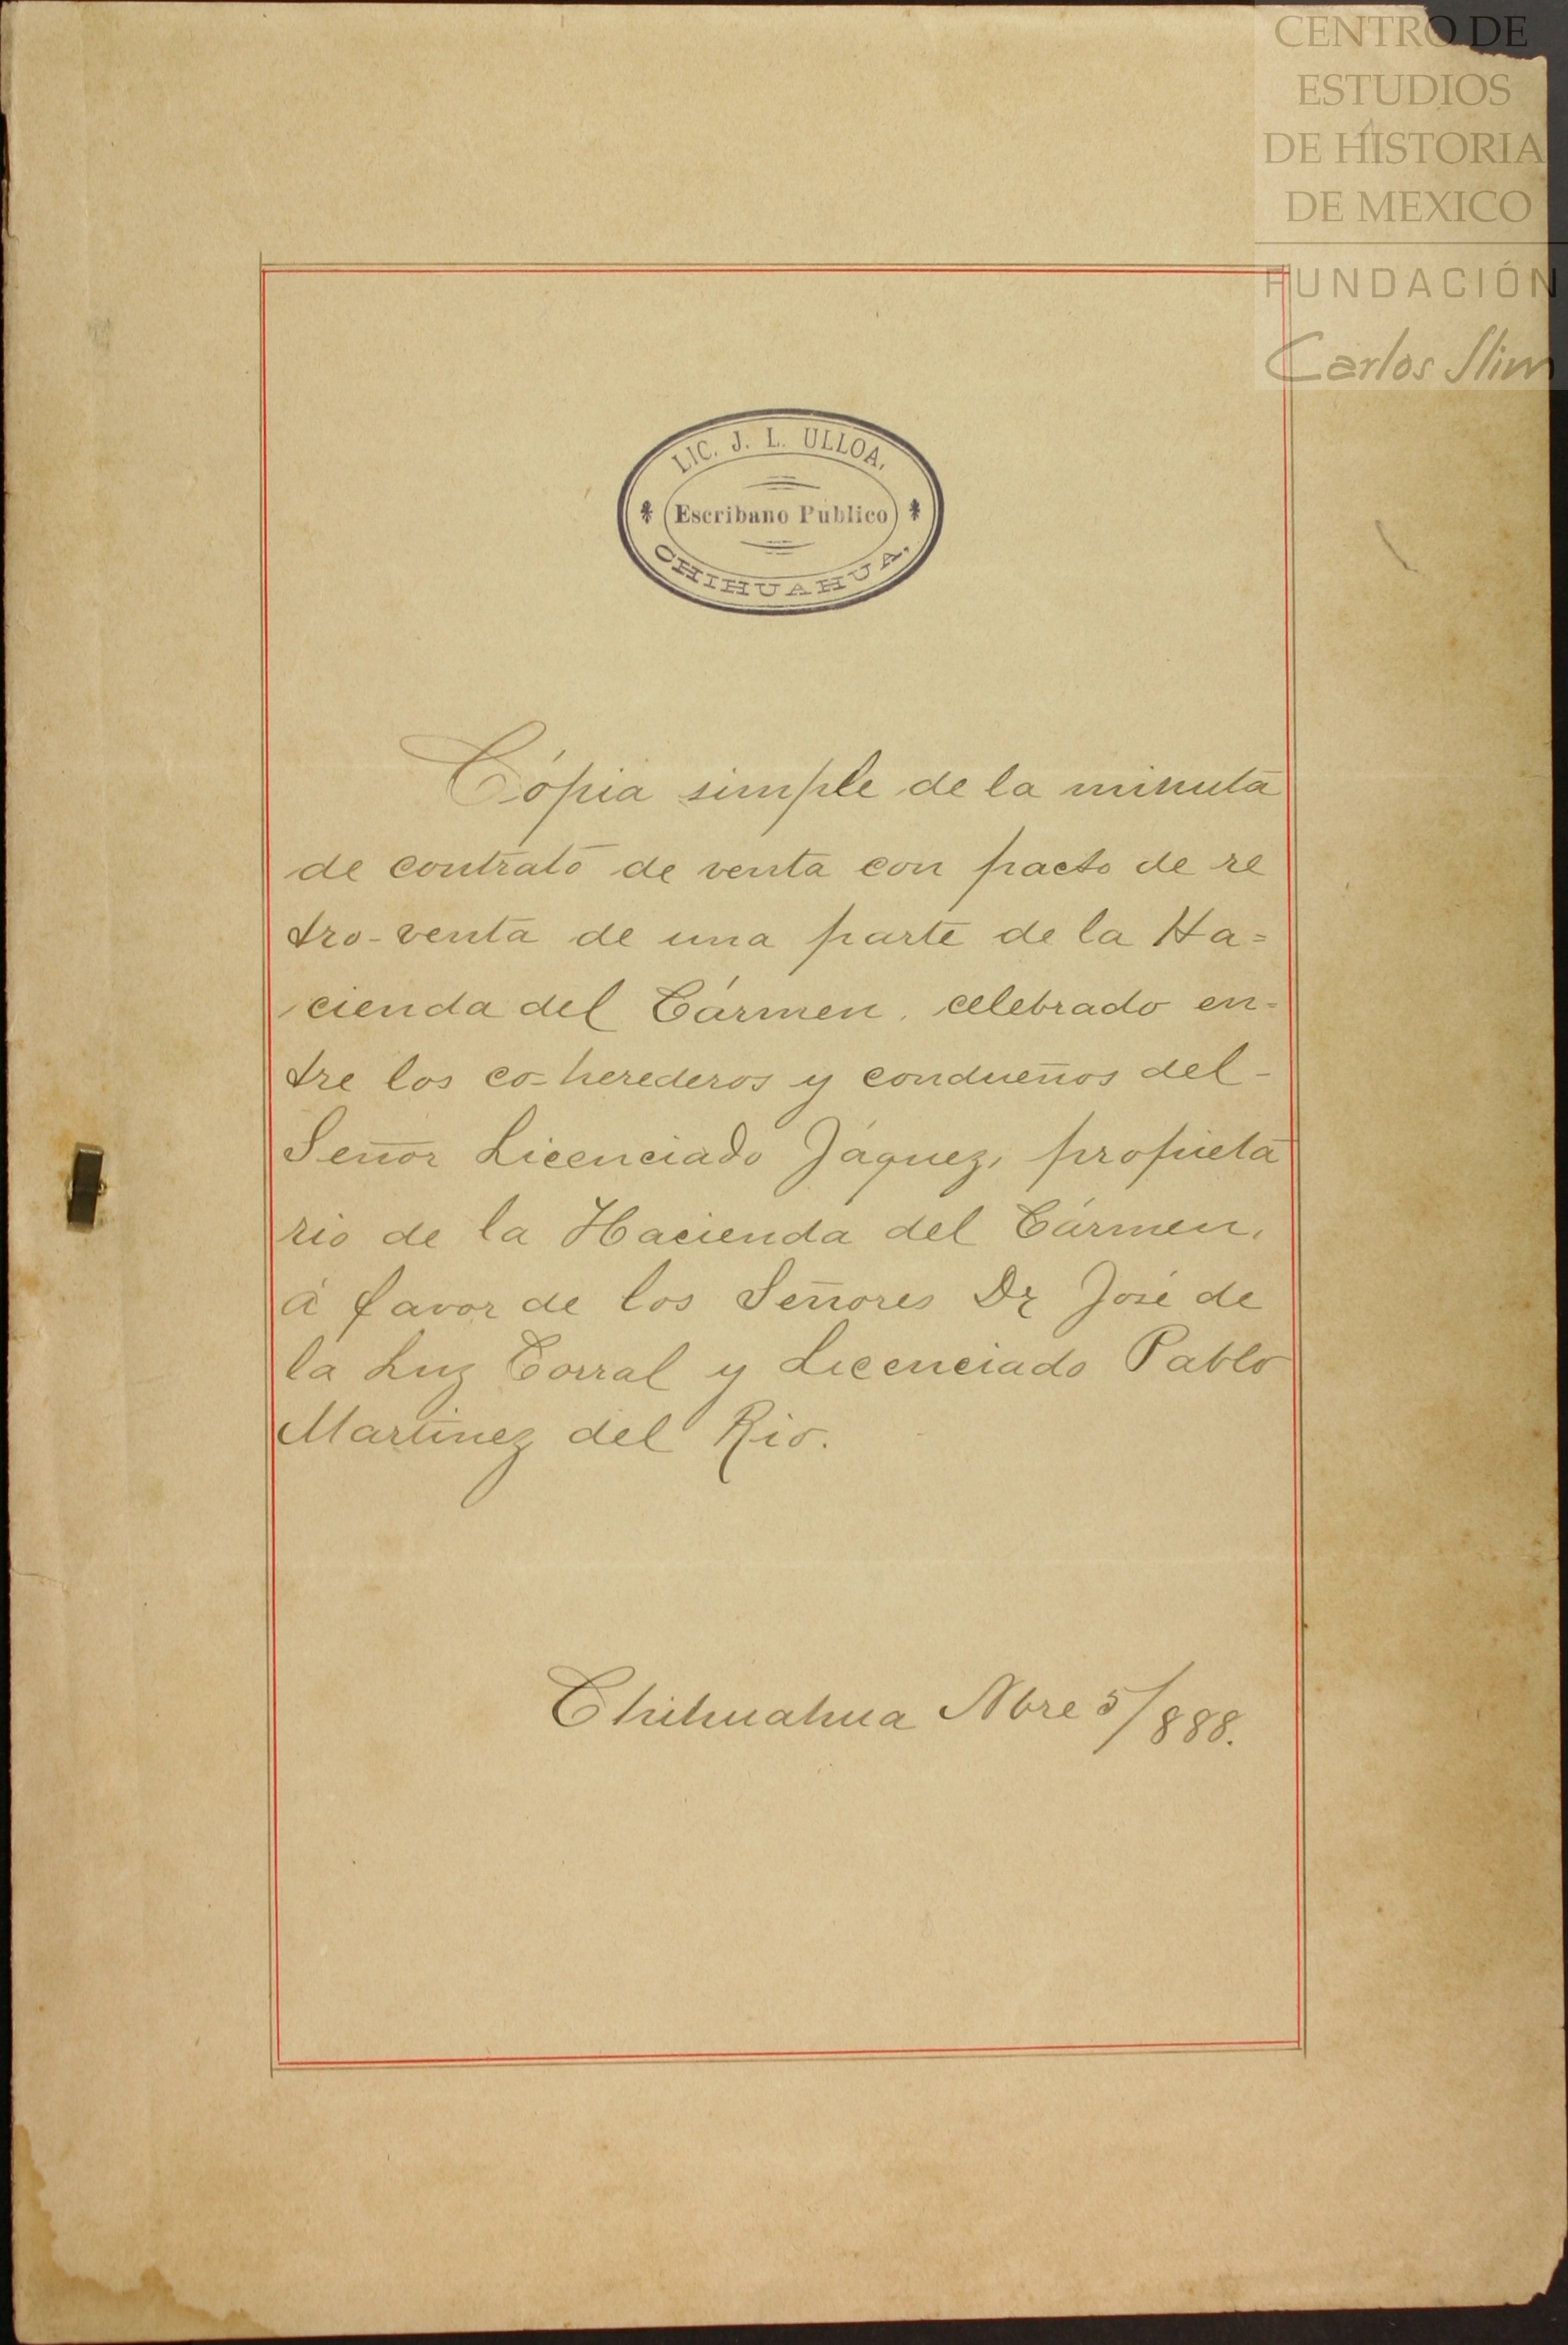 CENTRO DE
ESTUDIOS
DE HISTORIA
DE MEXICO
FUNDACIÓN
Carlos Slim
LIC. J. L. ULLOA.
Escribano Público
CHIHUAHUA.
Cópia simple de la minuta
de contrato de venta con pacto de re
tro-venta de una parte de la Ha=
cienda del Cármen, celebrado en=
tre los co-herederos y condueños del-
Señor Licenciado Jáquez, propieta
rio de la Hacienda del Cármen,
á favor de los Señores Dr José de
la Luz Corral y Licenciado Pablo
Martinez del Rio.
Chihuahua Nbre 5/888.